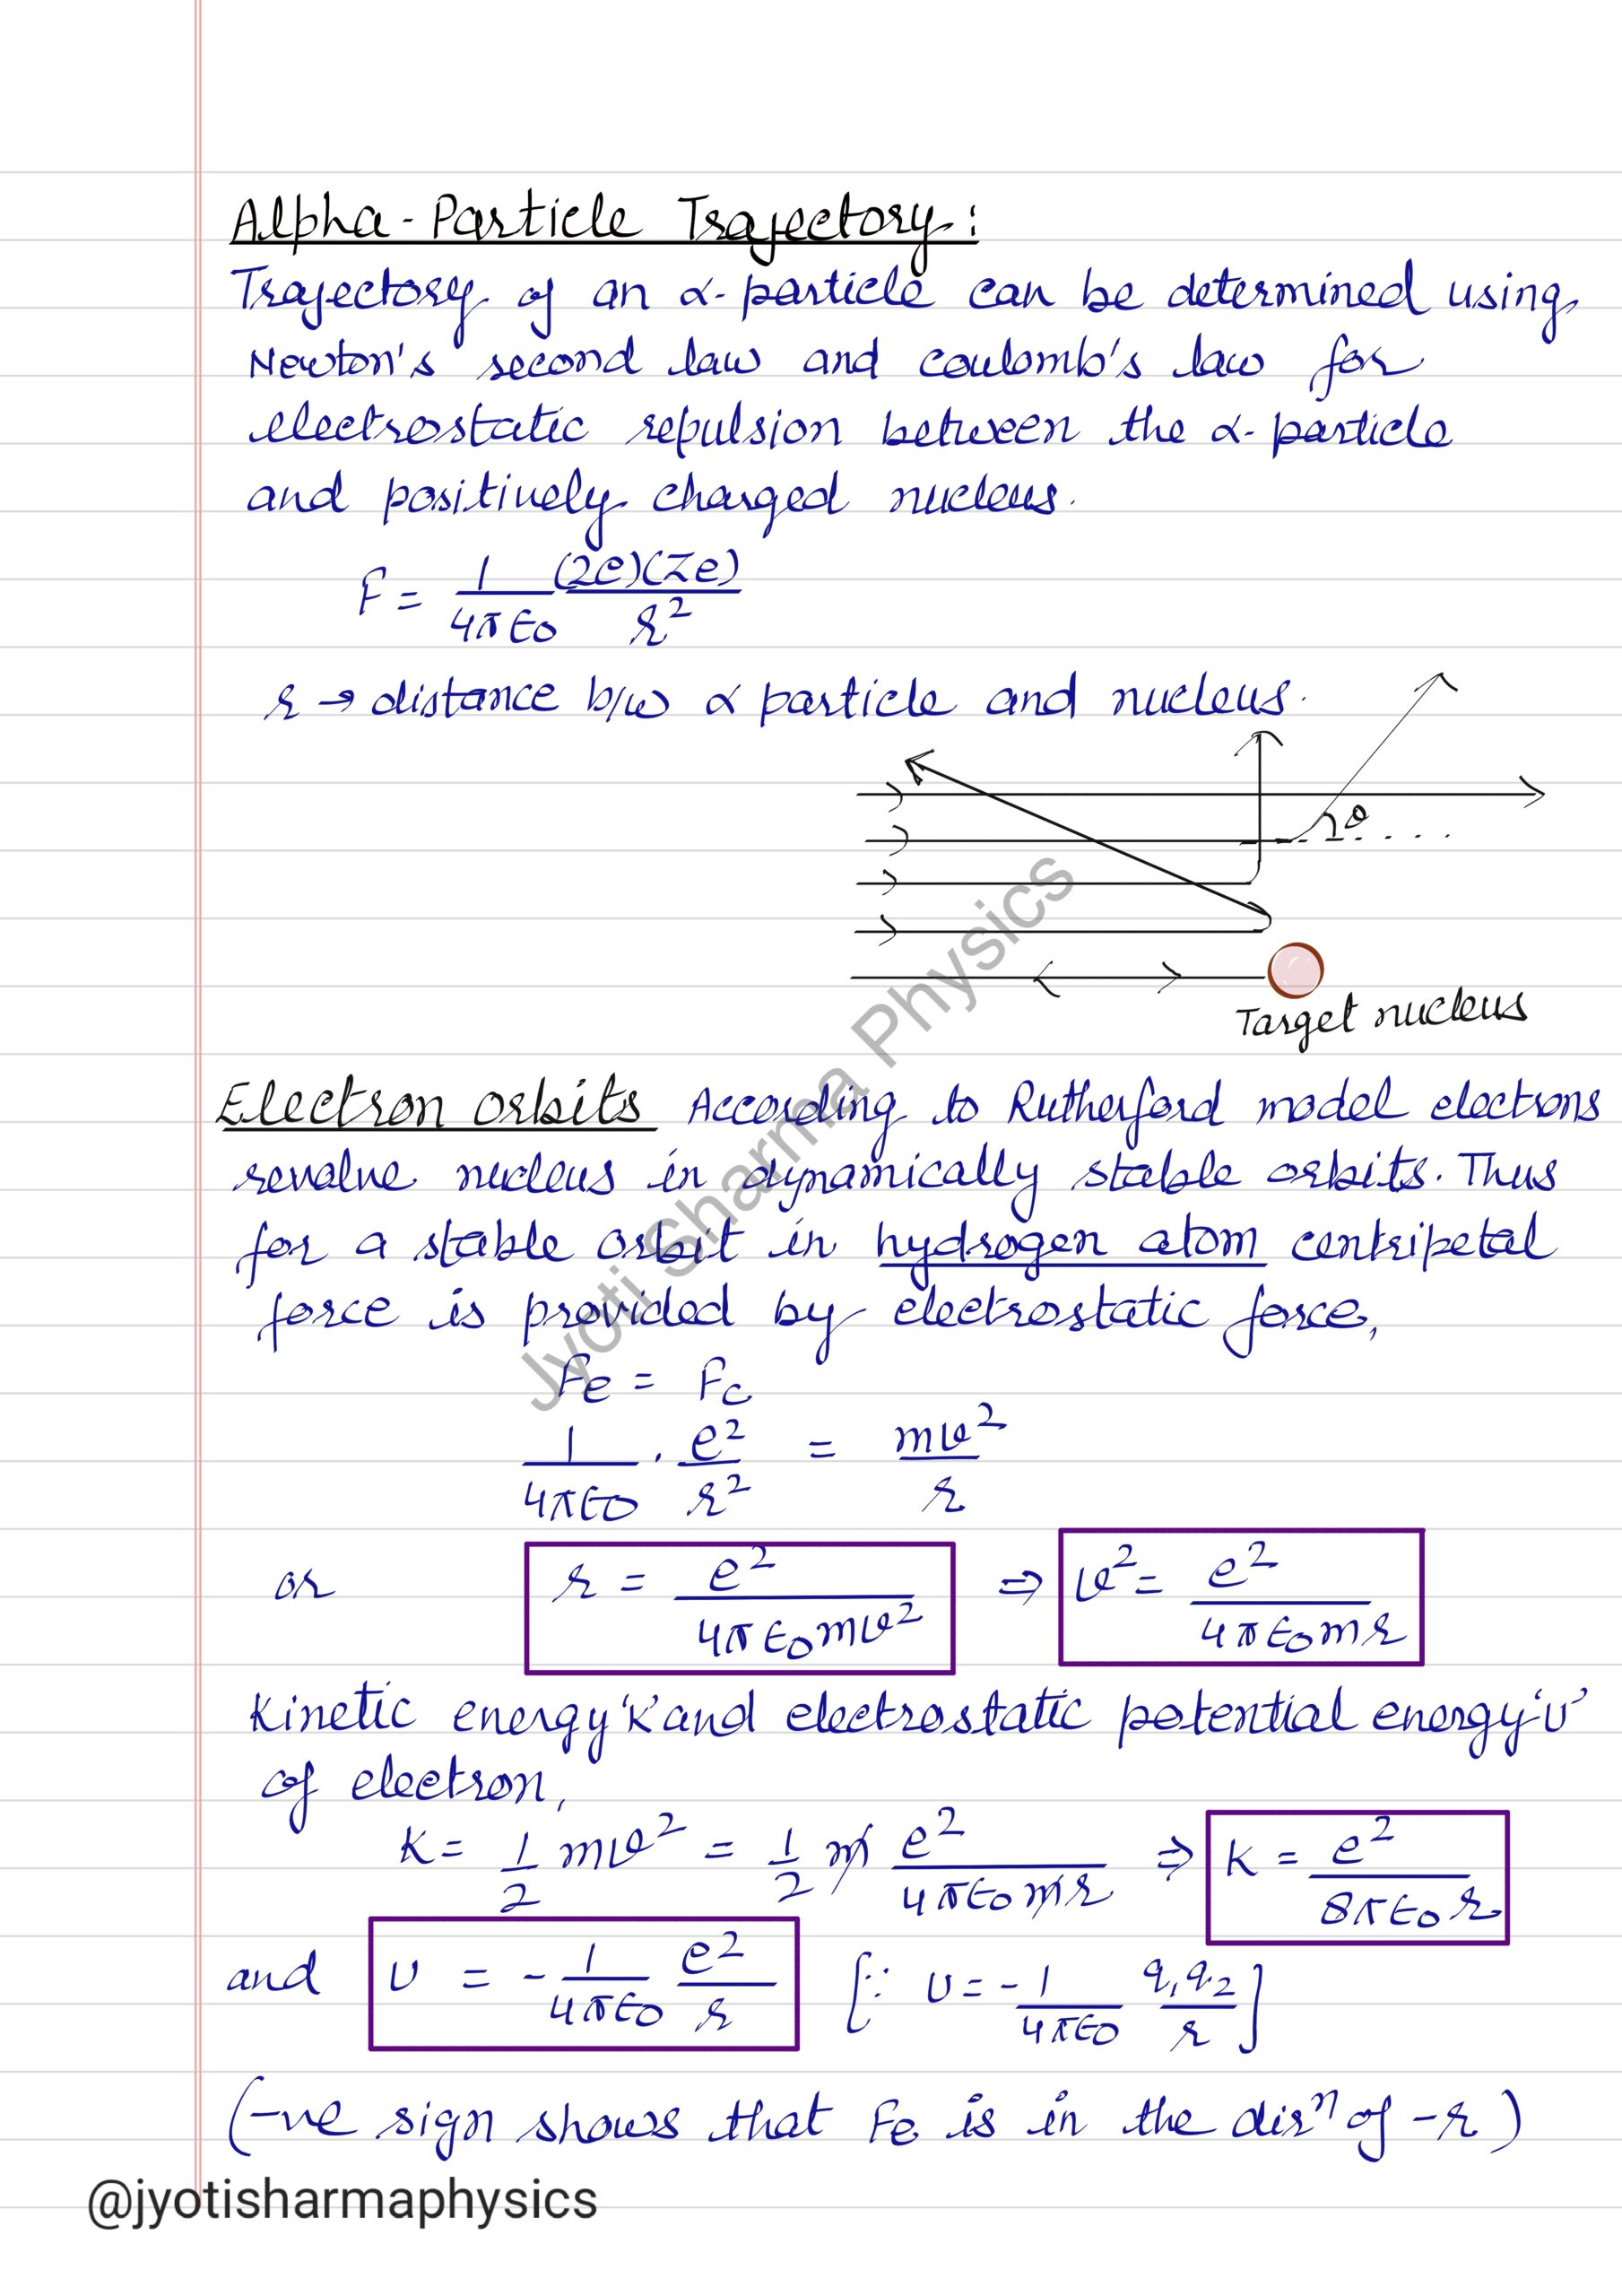 Alpha-Particle Trajectory:
Trajectory of an α-particle can be determined using
Newton's second law and coulomb's law for
electrostatic repulsion between the α-particle
and positively charged nucleus.
F = 1/4πε0 (2e)(Ze)/r²
r → distance b/w α particle and nucleus.
θ
Target nucleus
Electron orbits According to Rutherford model electrons
revolve nucleus in dynamically stable orbits. Thus
for a stable orbit in hydrogen atom centripetal
force is provided by electrostatic force,
Fe = Fc
1/4πε0 . e²/r² = mv²/r
or r = e²/4πε0mv² ⇒ v² = e²/4πε0mr
Kinetic energy 'K' and electrostatic potential energy 'U'
of electron,
K = 1/2 mv² = 1/2 m e²/4πε0mr ⇒ K = e²/8πε0r
and U = -1/4πε0 e²/r [∵ U = -1/4πε0 q1q2/r]
(-ve sign shows that Fe is in the dirⁿ of -r)
@jyotisharmaphysics
Jyoti Sharma Physics